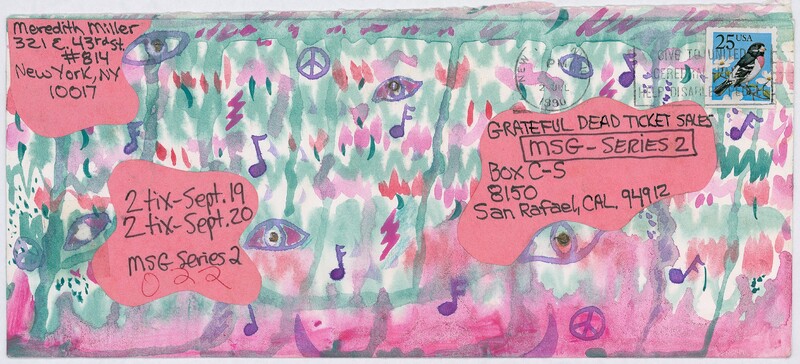 Meredith Miller
321 E. 43rd St.
#814
New York, NY
10017
25 USA
NEW
PM
2 JUL
1990
GIVE TO UNITED
CEREBRAL
HELP DISABLED
GRATEFUL DEAD TICKET SALES
MSG-SERIES 2
Box C-S
8150
San Rafael, CAL. 94912
2 tix-Sept. 19
2 tix-Sept. 20
MSG Series 2
022